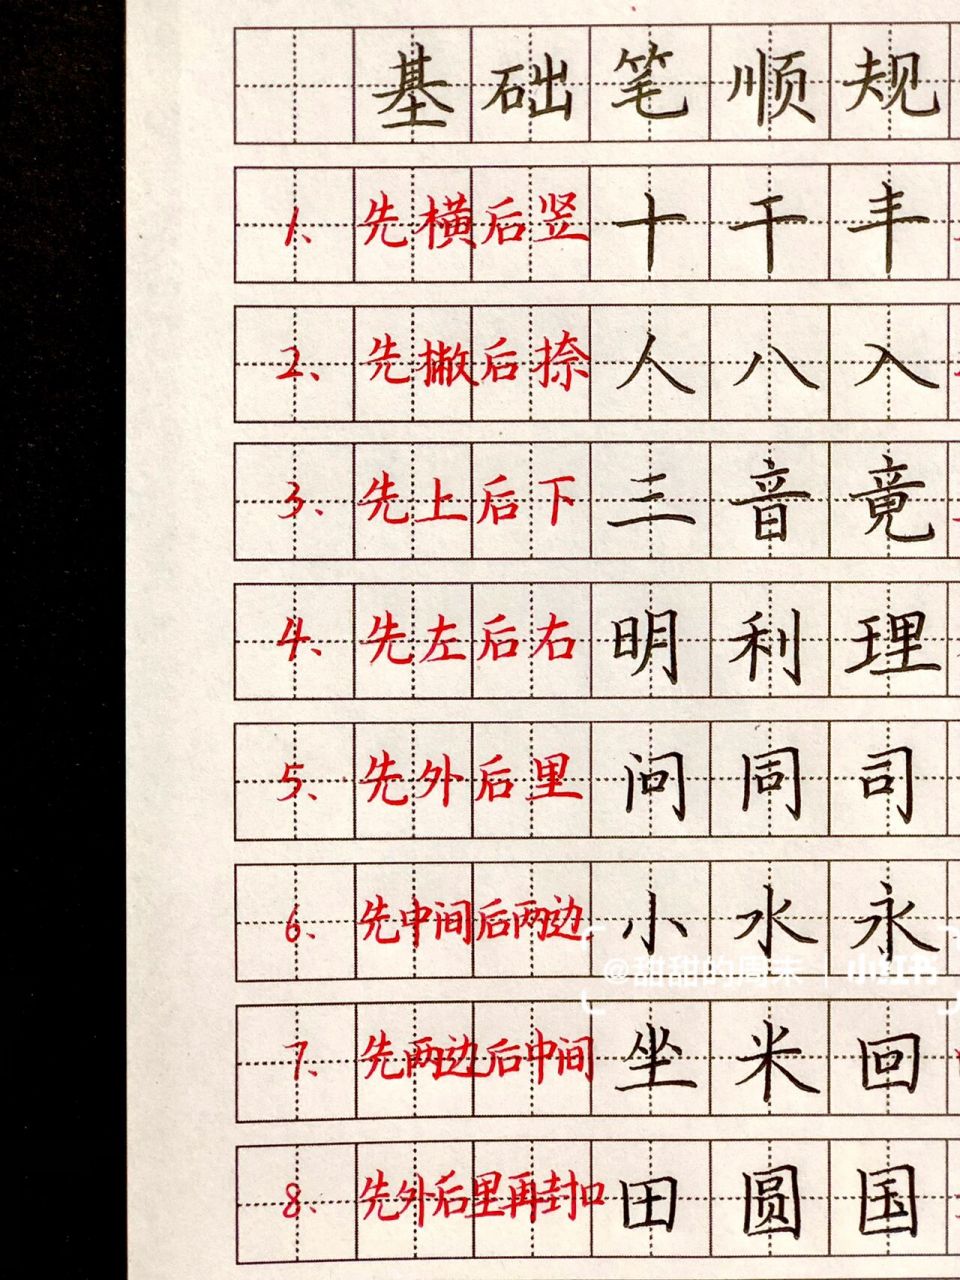 基础笔顺规
1、先横后竖十干丰
2、先撇后捺人八入
3、先上后下三音竟
4、先左后右明利理
5、先外后里问同司
6、先中间后两边小水永
@甜甜的周末 | 小红书
7、先两边后中间坐米回
8、先外后里再封口田圆国